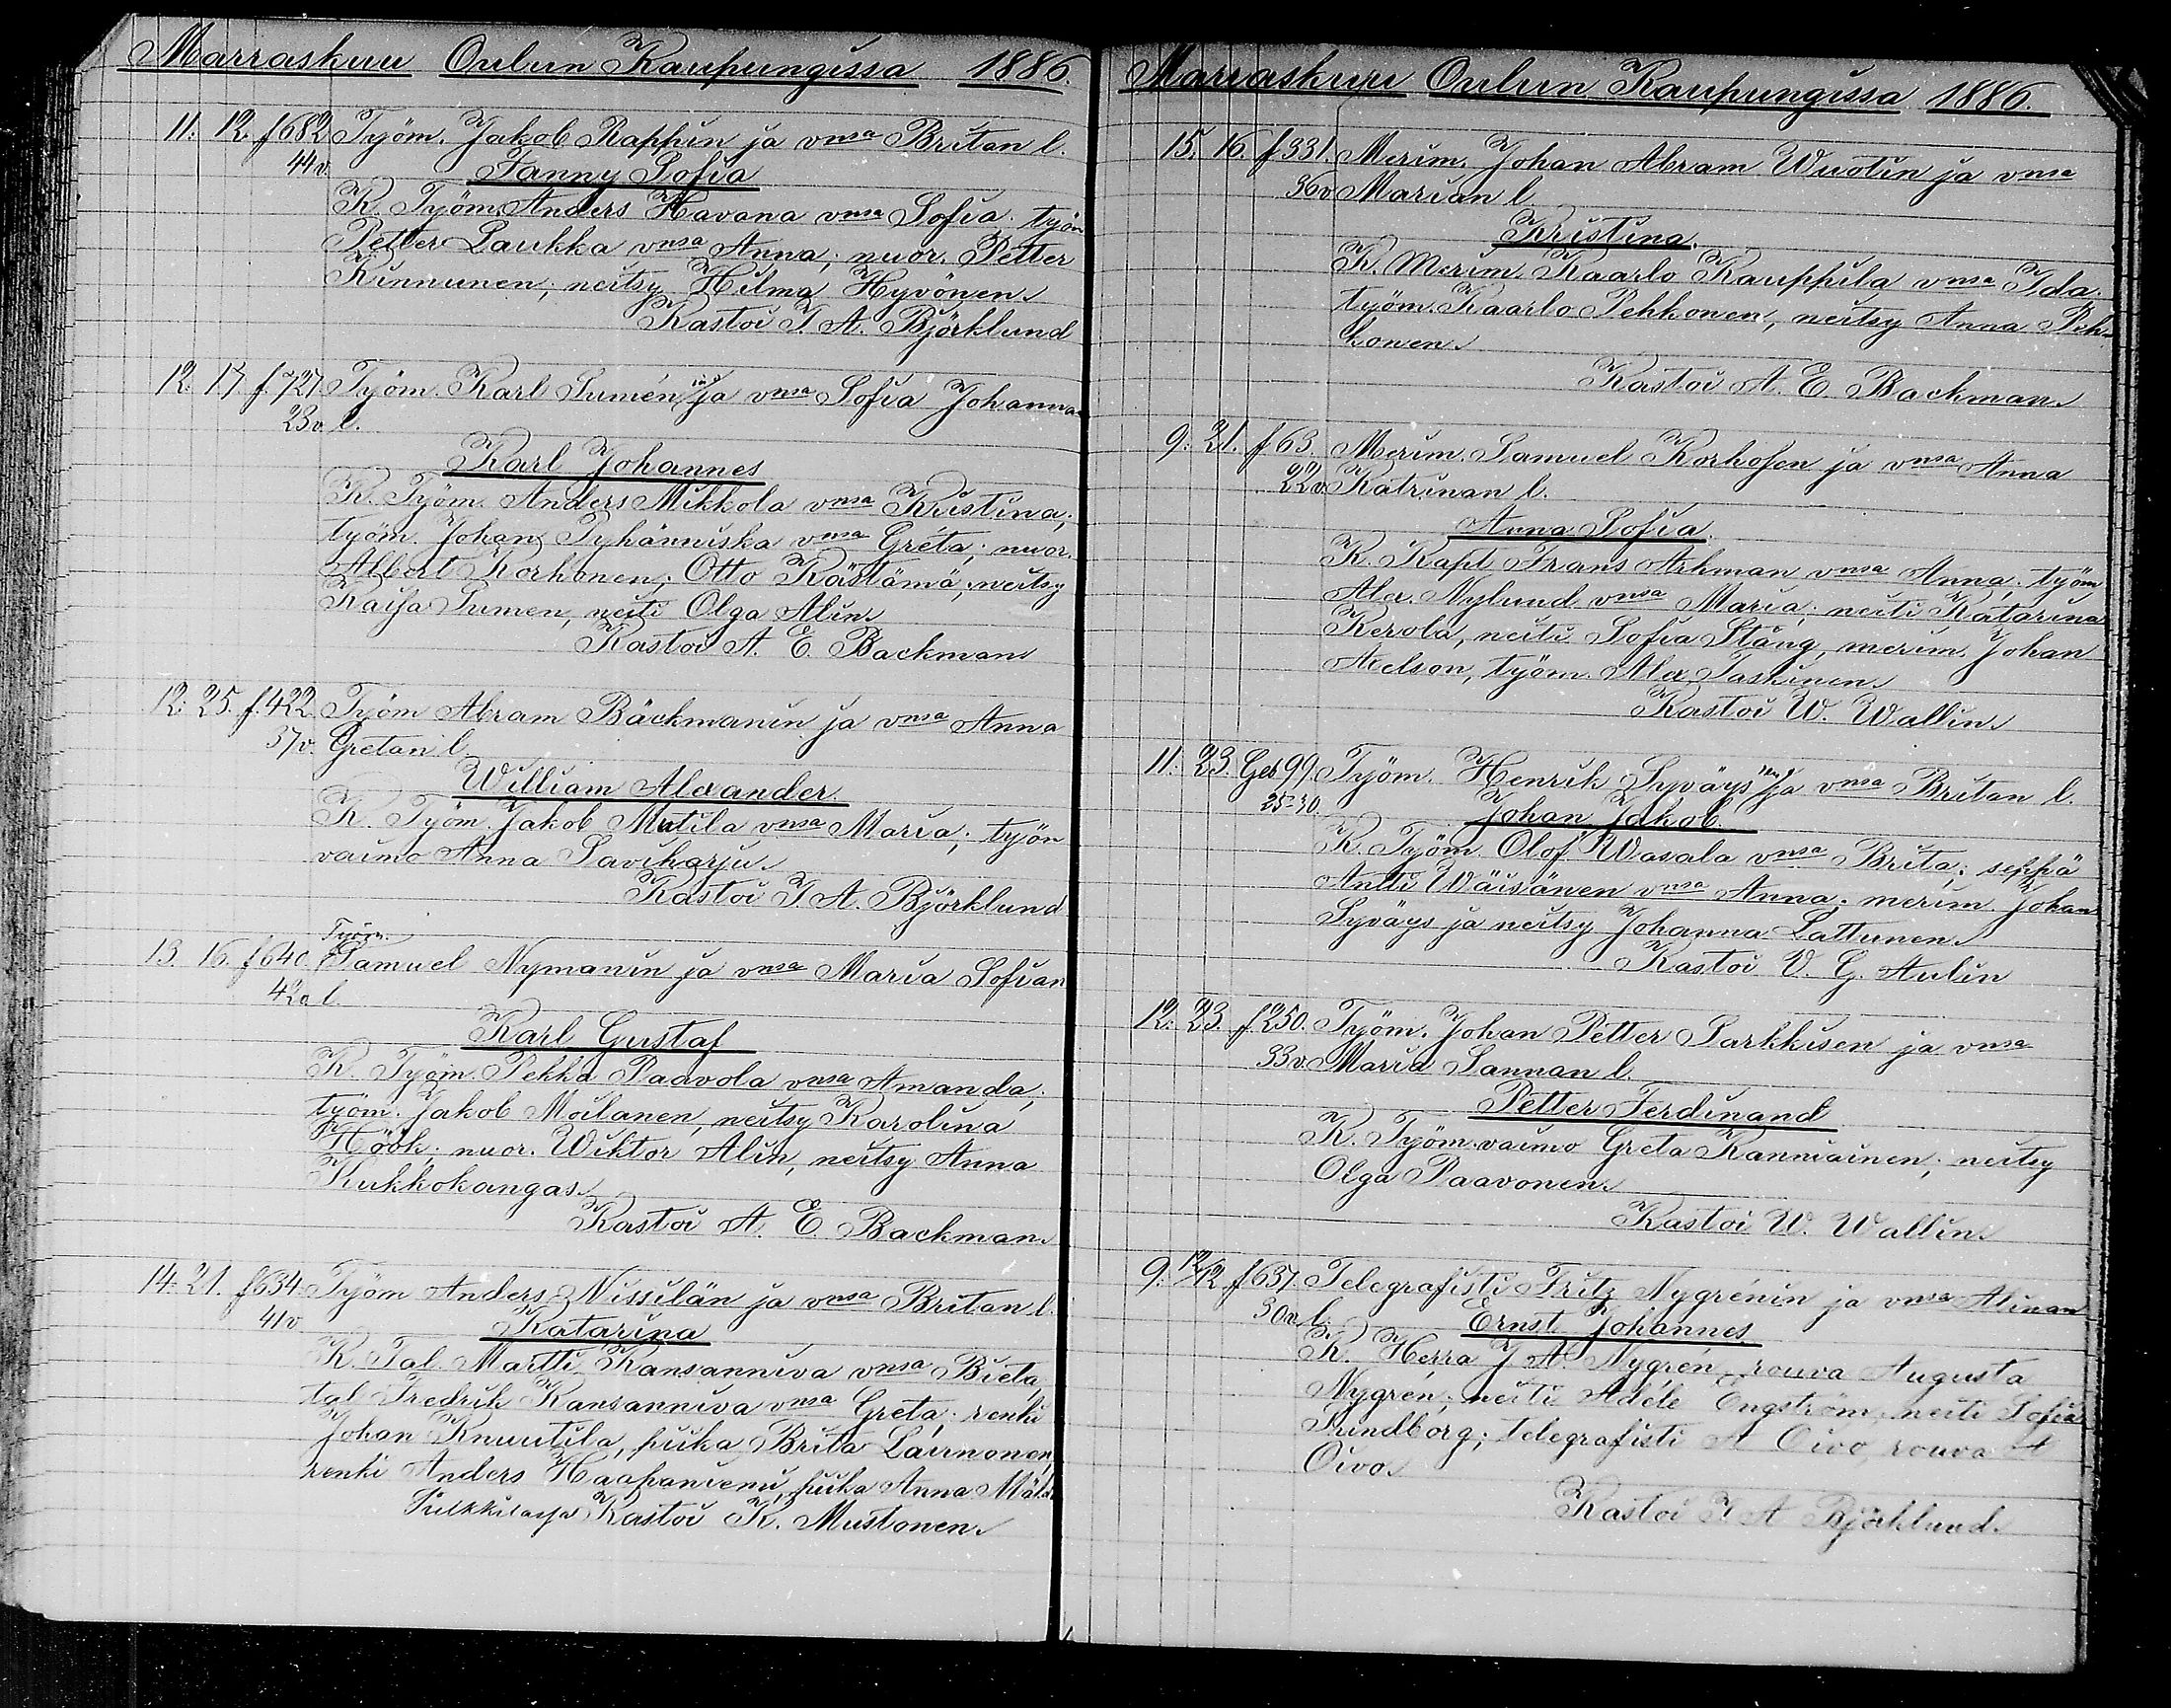 Marraskuu Oulun Kaupungissa 1886.
11. 12. f682 Työm. Jakob Rappin ja vmsa Britan l.
44v. Fanny Sofia
K. Työm. Anders Havana vmsa Sofia. työm
Petter Laukka vmsa Anna; nuor. Petter
Kinnunen; neitsy Hilma Hyvönen.
Kastoi J. A. Björklund
12. 17. f.727. Työm. Karl Sumén ja vmsa Sofia Johanna
23v l.
Karl Johannes
K. Työm. Anders Mikkola vmsa Kristina;
työm. Johan Pyhänniska vmsa Gréta; nuor.
Albert Korhonen; Otto Kästämä; neitsy
Kaisa Sumen, neiti Olga Alin.
Kastoi A. E. Backman.
12. 25. f.422. Työm Abram Bäckmanin ja vmsa Anna
37v. Gretan l.
William Alexander.
K. Työm. Jakob Mutila vmsa Maria; työn
vaimo Anna Saviharju.
Kastoi J. A. Björklund
Työm.
13. 16. f640. Samuel Nymanin ja vmsa Maria Sofian
42v l.
Karl Gustaf
K. Työm. Pekka Paavola vmsa Amanda;
työm. Jakob Moilanen, neitsy Karolina
Höök; nuor. Wiktor Alin, neitsy Anna
Kukkokangas.
Kastoi A. E. Backman.
14. 21. f634. Työm Anders Nissilän ja vmsa Britan l.
41v Katarina
K. Tal. Martti Kansanniva vmsa Brita,
tal Fredrik Kansanniva vmsa Greta; renki
Johan Knuutila, piika Brita Laurnonen,
renki Anders Haapaniemi, piika Anna
Pulkkilassa Kastoi K. Mustonen.
Marraskuu Oulun Kaupungissa 1886.
15. 16. f331. Merim. Johan Abram Wuotin ja vmsa
36v Marian l.
Kristina.
K. Merim. Kaarlo Kauppila vmsa Ida;
työm. Kaarlo Pehkonen, neitsy Anna Peh-
konen.
Kastoi A. E. Backman.
9. 21. f63. Merim. Samuel Korhosen ja vmsa Anna
22v. Katrinan l.
Anna Sofia.
K. Kapt Frans Arhman vmsa Anna; työm
Alex. Nylund vmsa Maria; neiti Katarina
Kerola, neiti Sofia Stång, merim. Johan
Axelson, työm. Alex Taskinen.
Kastoi W. Wallin.
11. 23. Geb 99. Työm. Henrik Syväys ja vmsa Britan l.
25-30. Johan Jakob.
K. Työm. Olof Wasala vmsa Brita; seppä
Antti Wäisänen vmsa Anna; merim Johan
Syväys ja neitsy Johanna Lattunen.
Kastoi V. G. Aulin
12. 23. f.250. Työm. Johan Petter Sarkkisen ja vmsa
33v. Maria Sannan l.
Petter Ferdinand
K. Työm. vaimo Greta Kanniainen; neitsy
Olga Paavonen.
Kastoi W. Wallin.
9. 12/12 f637. Telegrafisti Fritz Nygrénin ja vmsa Alinan
30v. l. Ernst Johannes
K. Herra J A Nygrén, rouva Augusta
Nygrén; neiti Adéle Engström, neiti Sofia
Sundborg; telegrafisti A Oivo, rouva A
Oivo.
Kastoi J. A Björklund.